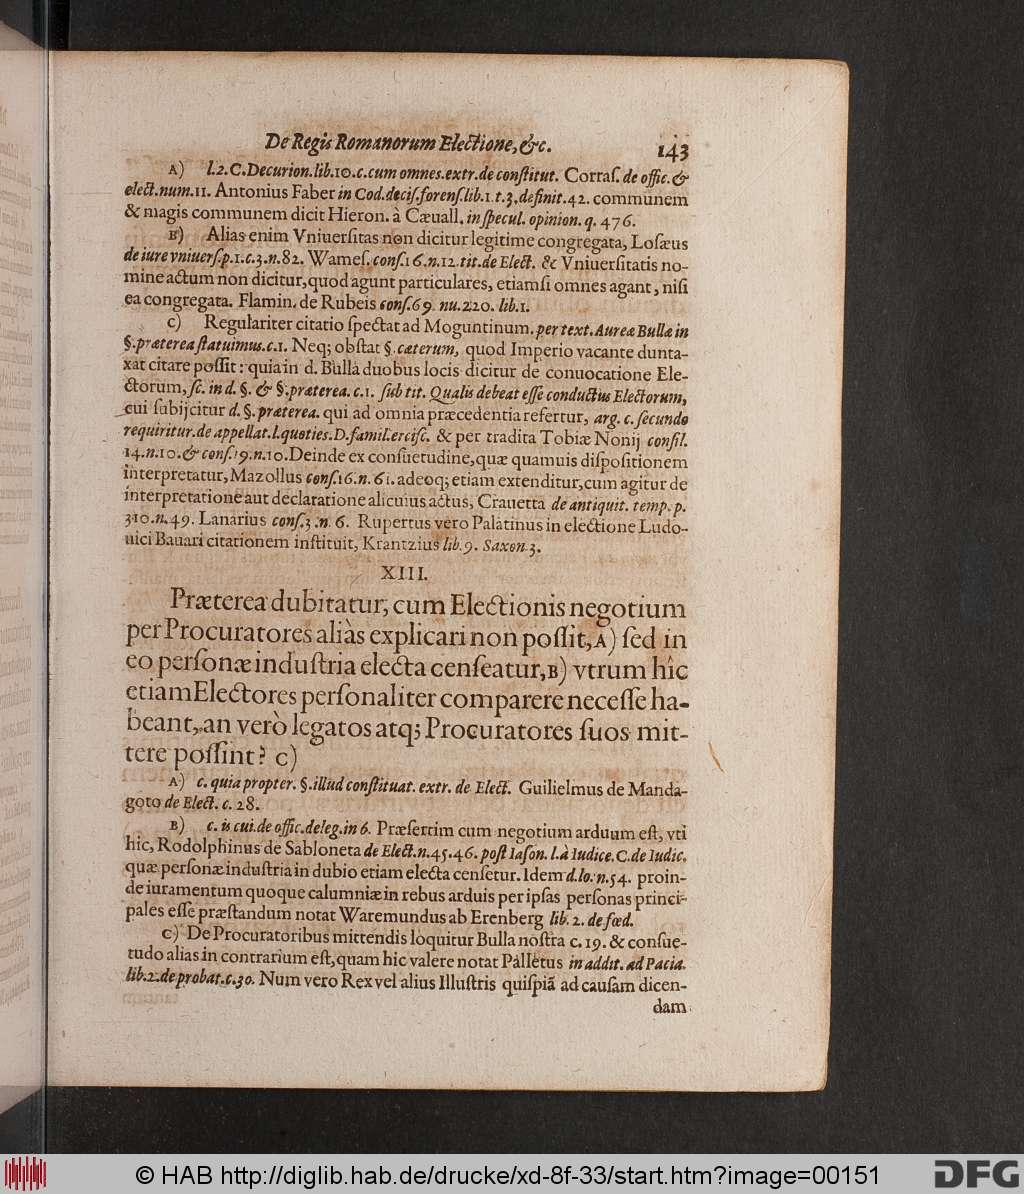 De Regis Romanorum Electione, &c. 143
A) l.2. C. Decurion. lib. 10. c. cum omnes. extr. de constitut. Corraſ. de offic. &
elect. num. 11. Antonius Faber in Cod. deciſ. forenſ. lib. 1. t. 3. definit. 42. communem
& magis communem dicit Hieron. à Cæuall. in ſpecul. opinion. q. 476.
B) Alias enim Vniuerſitas non dicitur legitime congregata, Loſæus
de iure vniuerſ. p. 1. c. 3. n. 82. Wameſ. conſ. 16. n. 12. tit. de Elect. & Vniuerſitatis no-
mine actum non dicitur, quod agunt particulares, etiamſi omnes agant, niſi
ea congregata. Flamin. de Rubeis conſ. 69. nu. 220. lib. 1.
C) Regulariter citatio ſpectat ad Moguntinum. per text. Aureæ Bullæ in
§. præterea ſtatuimus. c. 1. Neq; obſtat §. cæterum, quod Imperio vacante dunta-
xat citare poſſit: quia in d. Bulla duobus locis dicitur de conuocatione Ele-
ctorum, ſc. in d. §. & §. præterea. c. 1. ſub tit. Qualis debeat eſſe conductus Electorum,
cui ſubijcitur d. §. præterea. qui ad omnia præcedentia refertur, arg. c. ſecundo
requiritur. de appellat. l. quoties. D. famil. erciſc. & per tradita Tobiæ Nonij conſil.
14. n. 10. & conſ. 19. n. 10. Deinde ex conſuetudine, quæ quamuis diſpoſitionem
interpretatur, Mazollus conſ. 16. n. 61. adeoq; etiam extenditur, cum agitur de
interpretatione aut declaratione alicuius actus, Crauetta de antiquit. temp. p.
310. n. 49. Lanarius conſ. 3. n. 6. Rupertus vero Palatinus in electione Ludo-
uici Bauari citationem inſtituit, Krantzius lib. 9. Saxon. 3.
XIII.
Præterea dubitatur, cum Electionis negotium
per Procuratores aliàs explicari non poſſit, A) ſed in
eo perſonæ induſtria electa cenſeatur, B) vtrum hîc
etiam Electores perſonaliter comparere neceſſe ha-
beant, an verò legatos atq; Procuratores ſuos mit-
tere poſſint? C)
A) c. quia propter. §. illud conſtituat. extr. de Elect. Guilielmus de Manda-
goto de Elect. c. 28.
B) c. is cui. de offic. deleg. in 6. Præſertim cum negotium arduum eſt, vti
hic, Rodolphinus de Sabloneta de Elect. n. 45. 46. poſt Iaſon. l. à Iudice. C. de Iudic.
quæ perſonæ induſtria in dubio etiam electa cenſetur. Idem d. lo. n. 54. proin-
de iuramentum quoque calumniæ in rebus arduis per ipſas perſonas princi-
pales eſſe præſtandum notat Waremundus ab Erenberg lib. 2. de fœd.
C) De Procuratoribus mittendis loquitur Bulla noſtra c. 19. & conſue-
tudo alias in contrarium eſt, quam hic valere notat Palletus in addit. ad Pacia.
lib. 2. de probat. c. 30. Num vero Rex vel alius Illuſtris quiſpiã ad cauſam dicen-
dam
© HAB http://diglib.hab.de/drucke/xd-8f-33/start.htm?image=00151 DFG